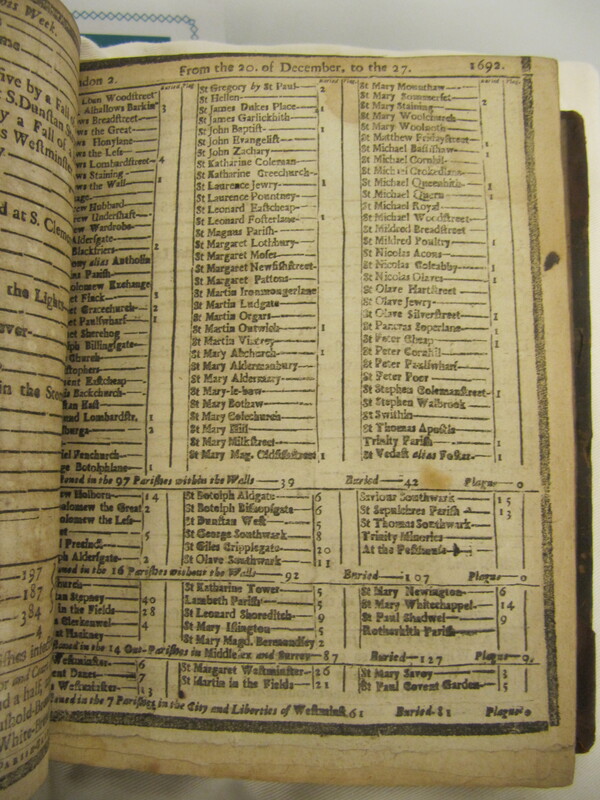 From the 20. of December, to the 27. 1692.
ndon 2.
Buried Plag
Buried Plag
lban Woodstreet
Alhallows Barkin 3
ws Breadstreet
ws the Great
ws Honylane
ws the Less
ws Lombardstreet 4
ws Staining
ws the Wall 1
ew Hubbard
ew Undershaft
ew Wardrobe
Aldersgate
Blackfriers
ny alias Antholin
ns Parish
olomew Exchange
et Finck 1
et Gracechurch 2
et Paulswharf 1
et Sherehog
lph Billingsgate
Church
stophers
ent Eastcheap
is Backchurch
tan East
und Lombardstr. 1
lburga 2
el Fenchurch
ge Botolphlane 1
St Gregory by St Paul 2
St Hellen
St James Dukes Place 1
St James Garlickhith
St John Baptist 1
St John Evangelist
St John Zachary
St Katharine Coleman
St Katharine Creechurch
St Laurence Jewry 1
St Laurence Pountney
St Leonard Eastcheap
St Leonard Fosterlane 1
St Magnus Parish
St Margaret Lothbury
St Margaret Moses
St Margaret Newfishstreet
St Margaret Pattons
St Martin Ironmongerlane
St Martin Ludgate
St Martin Orgars
St Martin Outwich 1
St Martin Vintrey
St Mary Abchurch 1
St Mary Aldermanbury
St Mary Aldermary
St Mary-le-bow
St Mary Bothaw
St Mary Colechurch
St Mary Hill
St Mary Milkstreet
St Mary Mag. Oldfishstreet 1
St Mary Mounthaw
St Mary Sommerset
St Mary Staining
St Mary Woolchurch
St Mary Woolnoth
St Matthew Fridaystreet
St Michael Bassishaw
St Michael Cornhil
St Michael Crokedlane
St Michael Queenhith 1
St Michael Quern
St Michael Royal
St Michael Woodstreet
St Mildred Breadstreet
St Mildred Poultry 1
St Nicolas Acons
St Nicolas Coleabby 1
St Nicolas Olaves 1
St Olave Hartstreet
St Olave Jewry
St Olave Silverstreet 1
St Pancras Soperlane 1
St Peter Cheap 1
St Peter Cornhil
St Peter Paulswharf
St Peter Poor
St Stephen Colemanstreet 1
St Stephen Walbrook
St Swithin
St Thomas Apostle
Trinity Parish 1
St Vedast alias Foster 1
tened in the 97 Parishes within the Walls 39 Buried 42 Plague 0
ew Holborn 14
alomew the Great 2
olomew the Less
Precinct
ph Aldersgate 2
St Botolph Aldgate 6
St Botolph Bishopsgate 6
St Dunstan West 5
St George Southwark 8
St Giles Cripplegate 20
St Olave Southwark 11
Saviour Southwark 15
St Sepulchres Parish 13
St Thomas Southwark
Trinity Minories
At the Pesthouse
tened in the 16 Parishes without the Walls 92 Buried 107 Plague 0
hurch
an Stepney 40
in the Fields 28
Clerkenwel 4
at Hackney
St Katharine Tower 5
Lambeth Parish 5
St Leonard Shoreditch 9
St Mary Islington 5
St Mary Magd. Bermondsey 2
St Mary Newington 6
St Mary Whitechappel 14
St Paul Shadwel 9
Rotherhith Parish
tened in the 14 Out-Parishes in Middlesex and Surrey 87 Buried 127 Plague 0
Westminster 6
ent Danes 7
s Westminster 13
St Margaret Westminster 26
St Martin in the Fields 21
St Mary Savoy 3
St Paul Covent Garden 5
tened in the 7 Parishes in the City and Liberties of Westminst. 61 Buried 81 Plague 0
Week.
ive by a Fall
S. Dunstan
y a Fall of
s Westminster
d at S. Clem
the Lights
ever
in the Sto
197
187
384
4